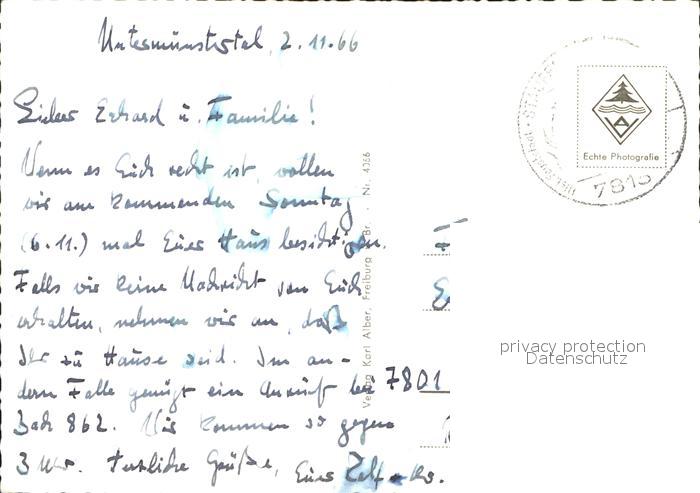 Untermünstertal, 2.11.66
Lieber Erhard u. Familie!
Wenn es Euch recht ist, wollen
wir am kommenden Sonntag
(6.11.) mal Euer Haus besichtigen.
Falls wir keine Nachricht von Euch
erhalten, nehmen wir an, daß
Ihr zu Hause seid. Im an-
dern Falle genügt ein Anruf bei
862. Wir kommen so gegen
3 Uhr. Herzliche Grüße, Euer
Verlag Karl Alber, Freiburg i. Br. · Nr. 4366
Echte Photografie
7815
7801
privacy protection
Datenschutz